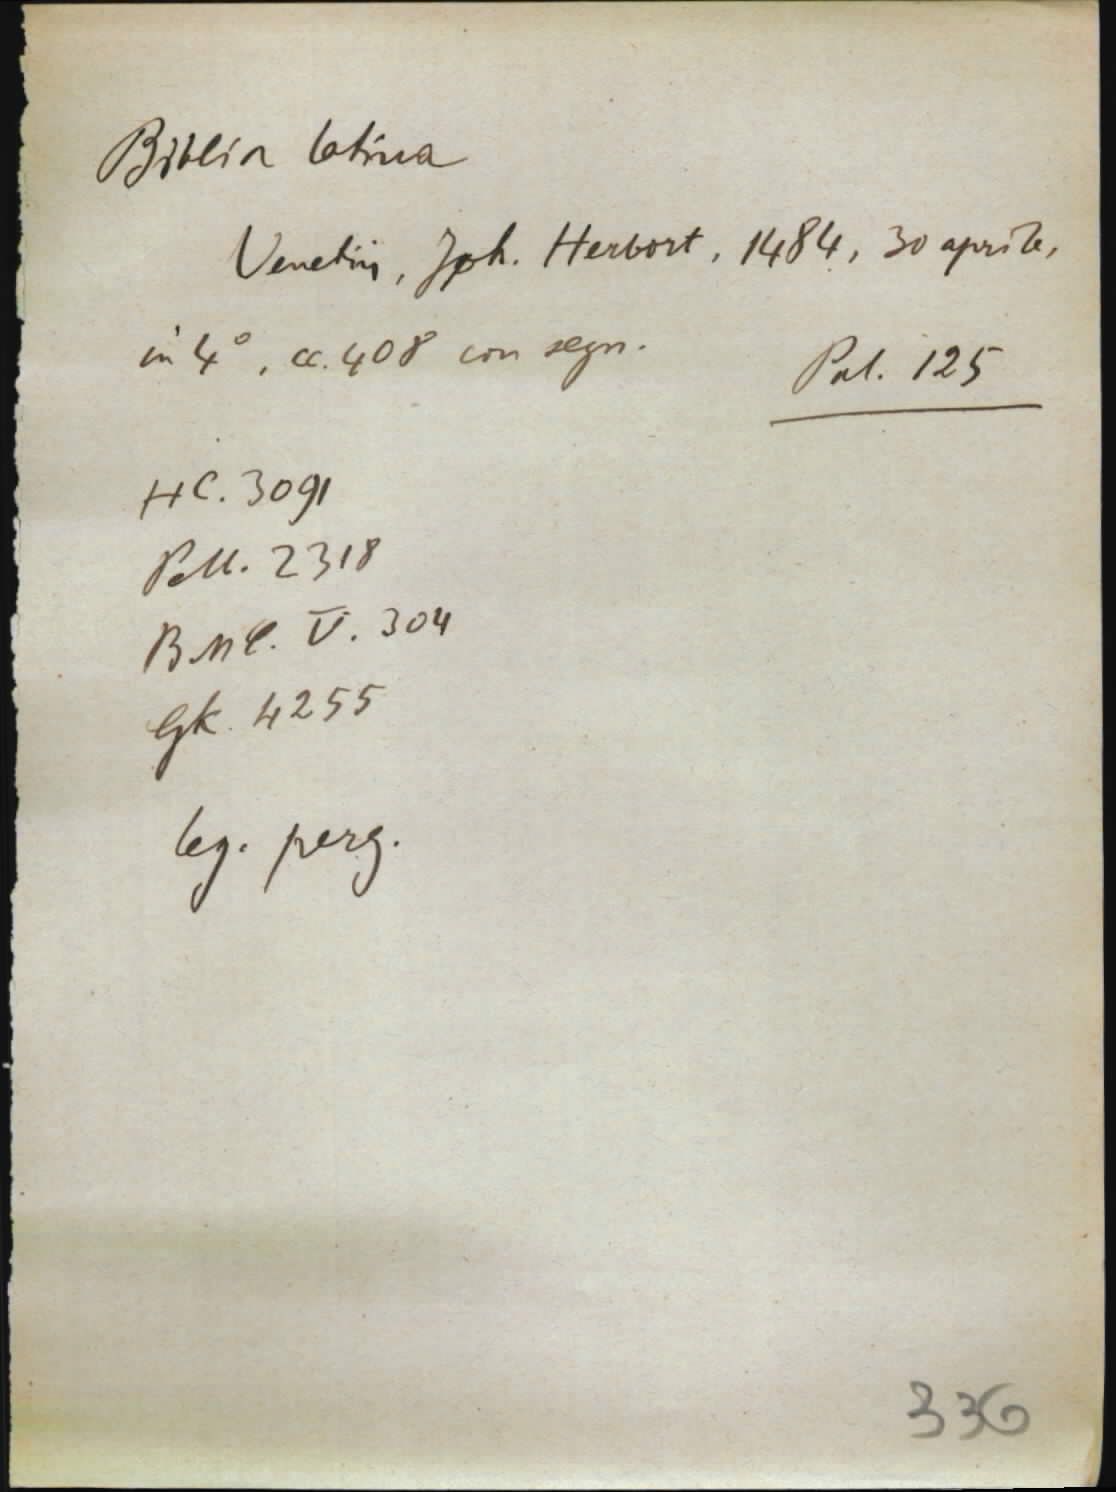 Biblia latina
Venetiis, Joh. Herbort, 1484, 30 aprile,
in 4°, cc. 408 con segn.
Pal. 125
HC. 3091
Pell. 2318
BMC. V. 304
Gk. 4255
leg. perg.
336